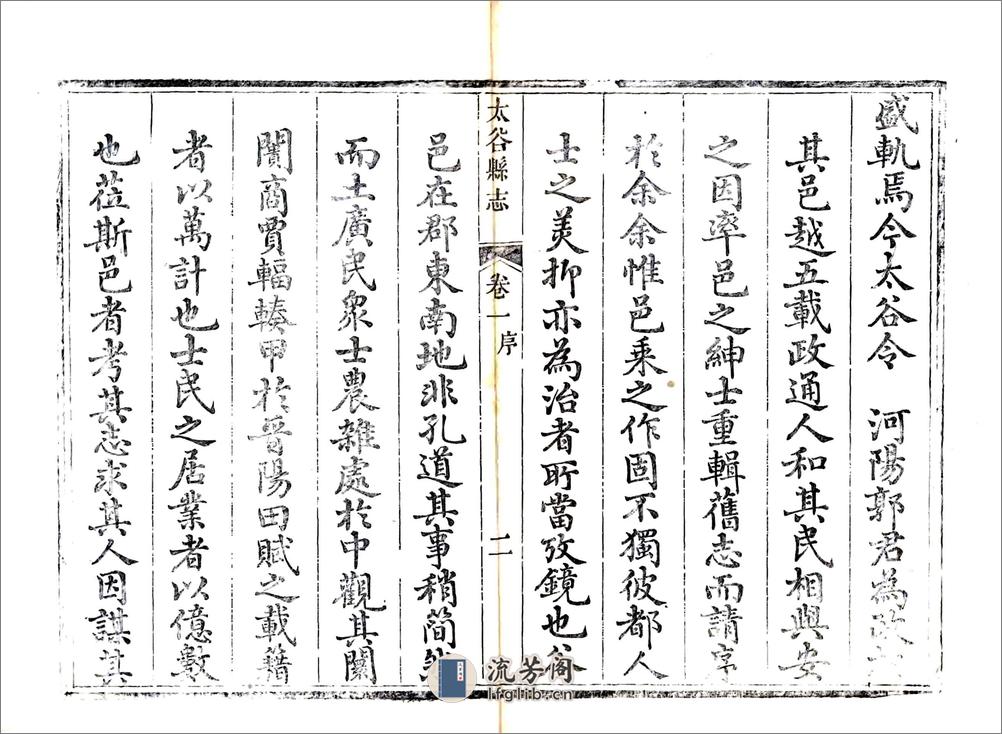 盛軌焉今太谷令　河陽郭君為政於
其邑越五載政通人和其民相與安
之因率邑之紳士重輯舊志而請序
於余余惟邑乘之作固不獨彼都人
士之美抑亦為治者所當攷鏡也谷
太谷縣志
卷一 序
二
邑在郡東南地非孔道其事稍簡
而土廣民眾士農雜處於中觀其闤
闠商賈輻輳甲於晉陽田賦之載籍
者以萬計也士民之居業者以億數
也蒞斯邑者考其志求其人因謀其
流芳阁
lfglib.com